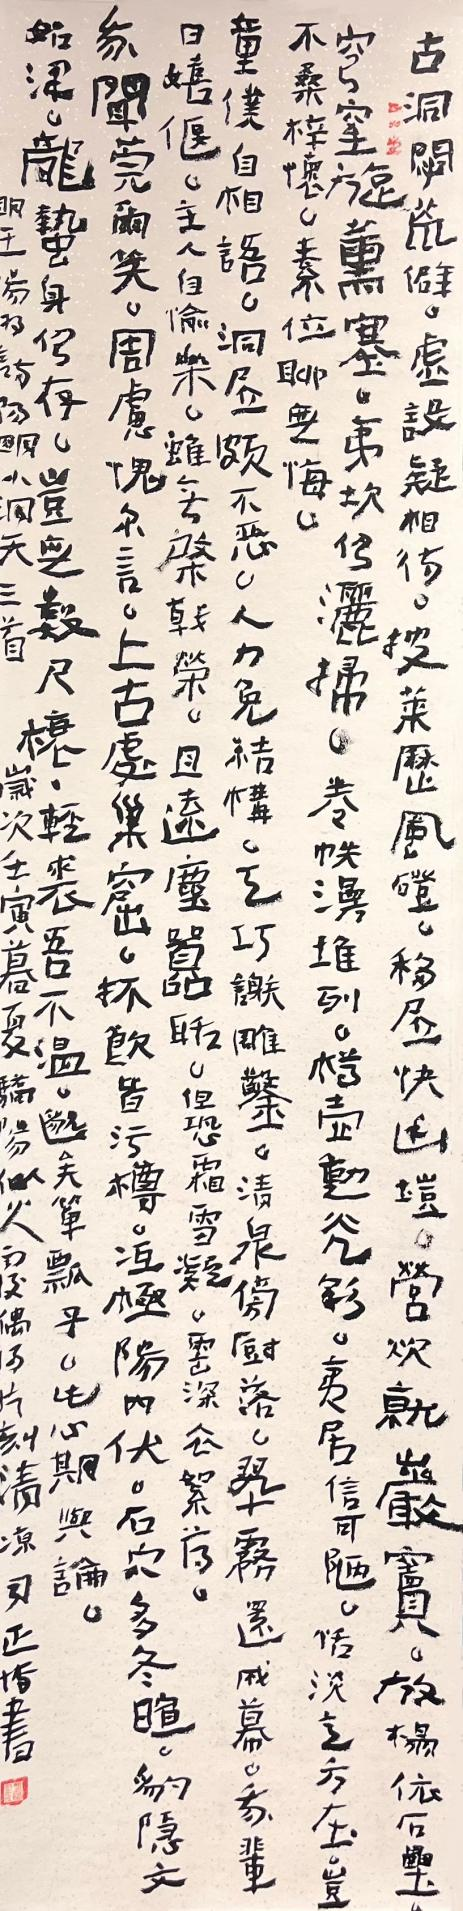 古洞閟荒僻。虛設疑相待。披萊歷風磴。移居快幽塏。營炊就巖竇。放榻依石壘。
穹窒旋薰塞。夷坎仍灑掃。卷帙漫堆列。樽壺動光彩。夷居信可陋。恬淡意方在。豈
不桑梓懷。素位聊無悔。
童僕自相語。洞居頗不惡。人力免結構。天巧謝雕鑿。清泉傍廚落。翠霧還成幕。我輩
日嬉偃。主人自愉樂。雖無棨戟榮。且遠塵囂聒。但恐霜雪凝。雲深衣絮薄。
我聞莞爾笑。周慮愧尔言。上古處巢窟。抔飲皆污樽。冱極陽內伏。石穴多冬暄。豹隱文
始澤。龍蟄身仍存。豈無數尺榱、輕裘吾不溫。邈矣簞瓢子。此心期與論。
明王陽明詩陽明小洞天三首 歲次壬寅暮夏驕陽似火 偶得片刻清涼 書